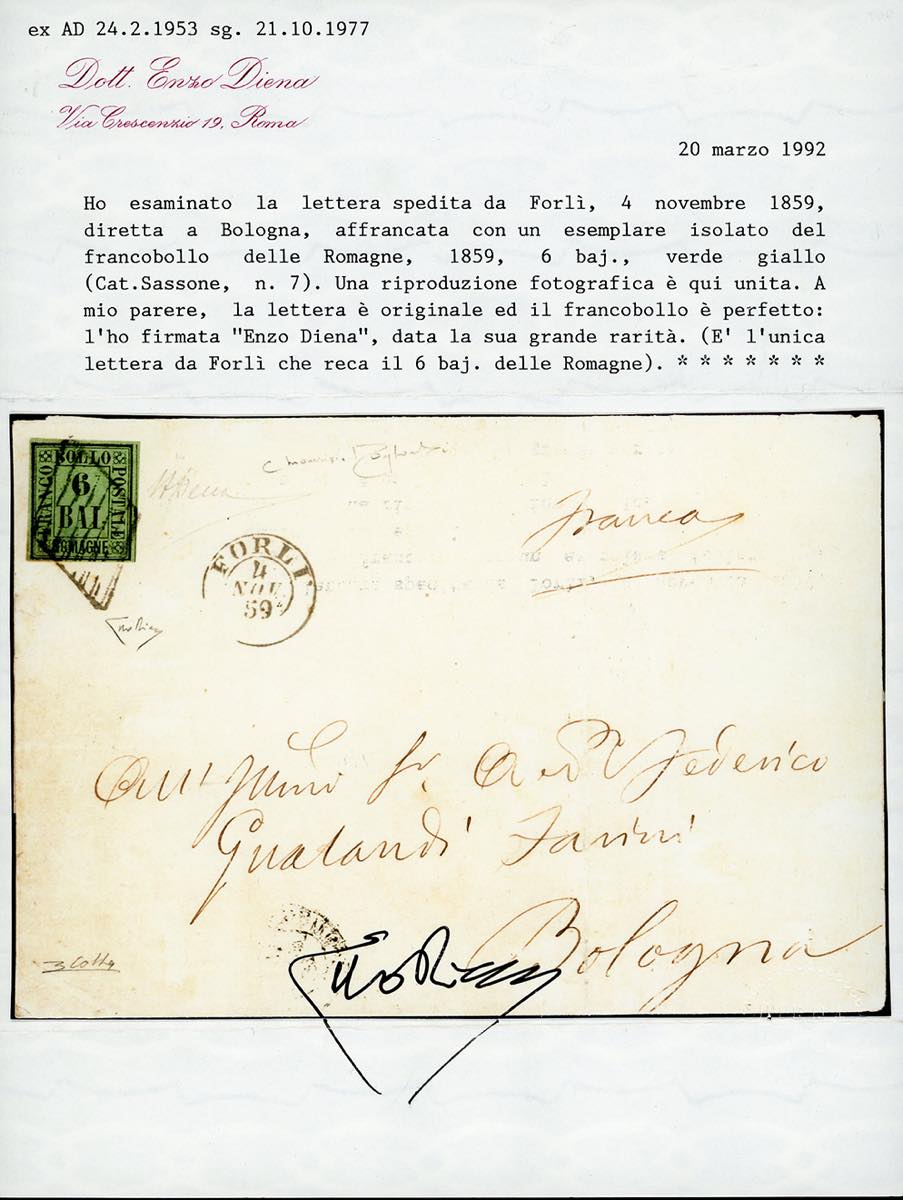 ex AD 24.2.1953 sg. 21.10.1977
Dott. Enzo Diena
Via Crescenzio 19, Roma
20 marzo 1992
Ho esaminato la lettera spedita da Forlì, 4 novembre 1859,
diretta a Bologna, affrancata con un esemplare isolato del
francobollo delle Romagne, 1859, 6 baj., verde giallo
(Cat.Sassone, n. 7). Una riproduzione fotografica è qui unita. A
mio parere, la lettera è originale ed il francobollo è perfetto:
l'ho firmata "Enzo Diena", data la sua grande rarità. (E' l'unica
lettera da Forlì che reca il 6 baj. delle Romagne). * * * * * * *
FRANCO BOLLO POSTALE
6
BAI
ROMAGNE
ADiena
Franca
FORLI'
4
NOV.
59
Enzo Diena
Federico
Gualandi Farini
Bologna
Enzo Diena